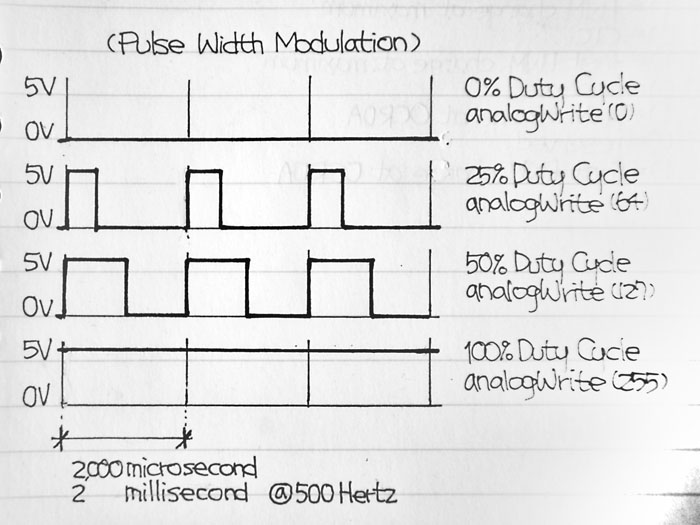 (Pulse Width Modulation)
5V
0V
0% Duty Cycle
analogWrite(0)
5V
0V
25% Duty Cycle
analogWrite(64)
5V
0V
50% Duty Cycle
analogWrite(127)
5V
0V
100% Duty Cycle
analogWrite(255)
2,000 microsecond
2 millisecond @500 Hertz